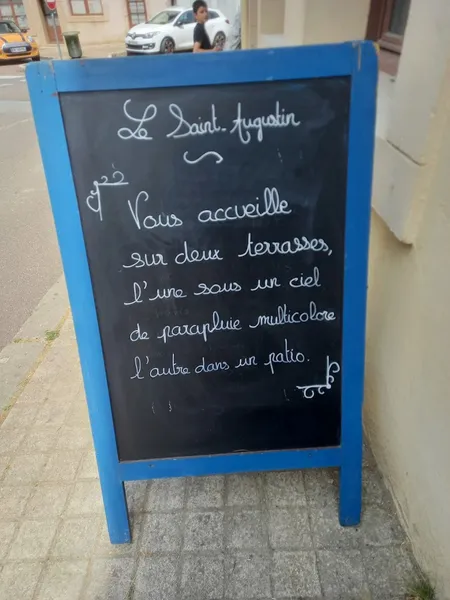 Le Saint-Augustin
Vous accueille
sur deux terrasses,
l'une sous un ciel
de parapluie multicolore
l'autre dans un patio.